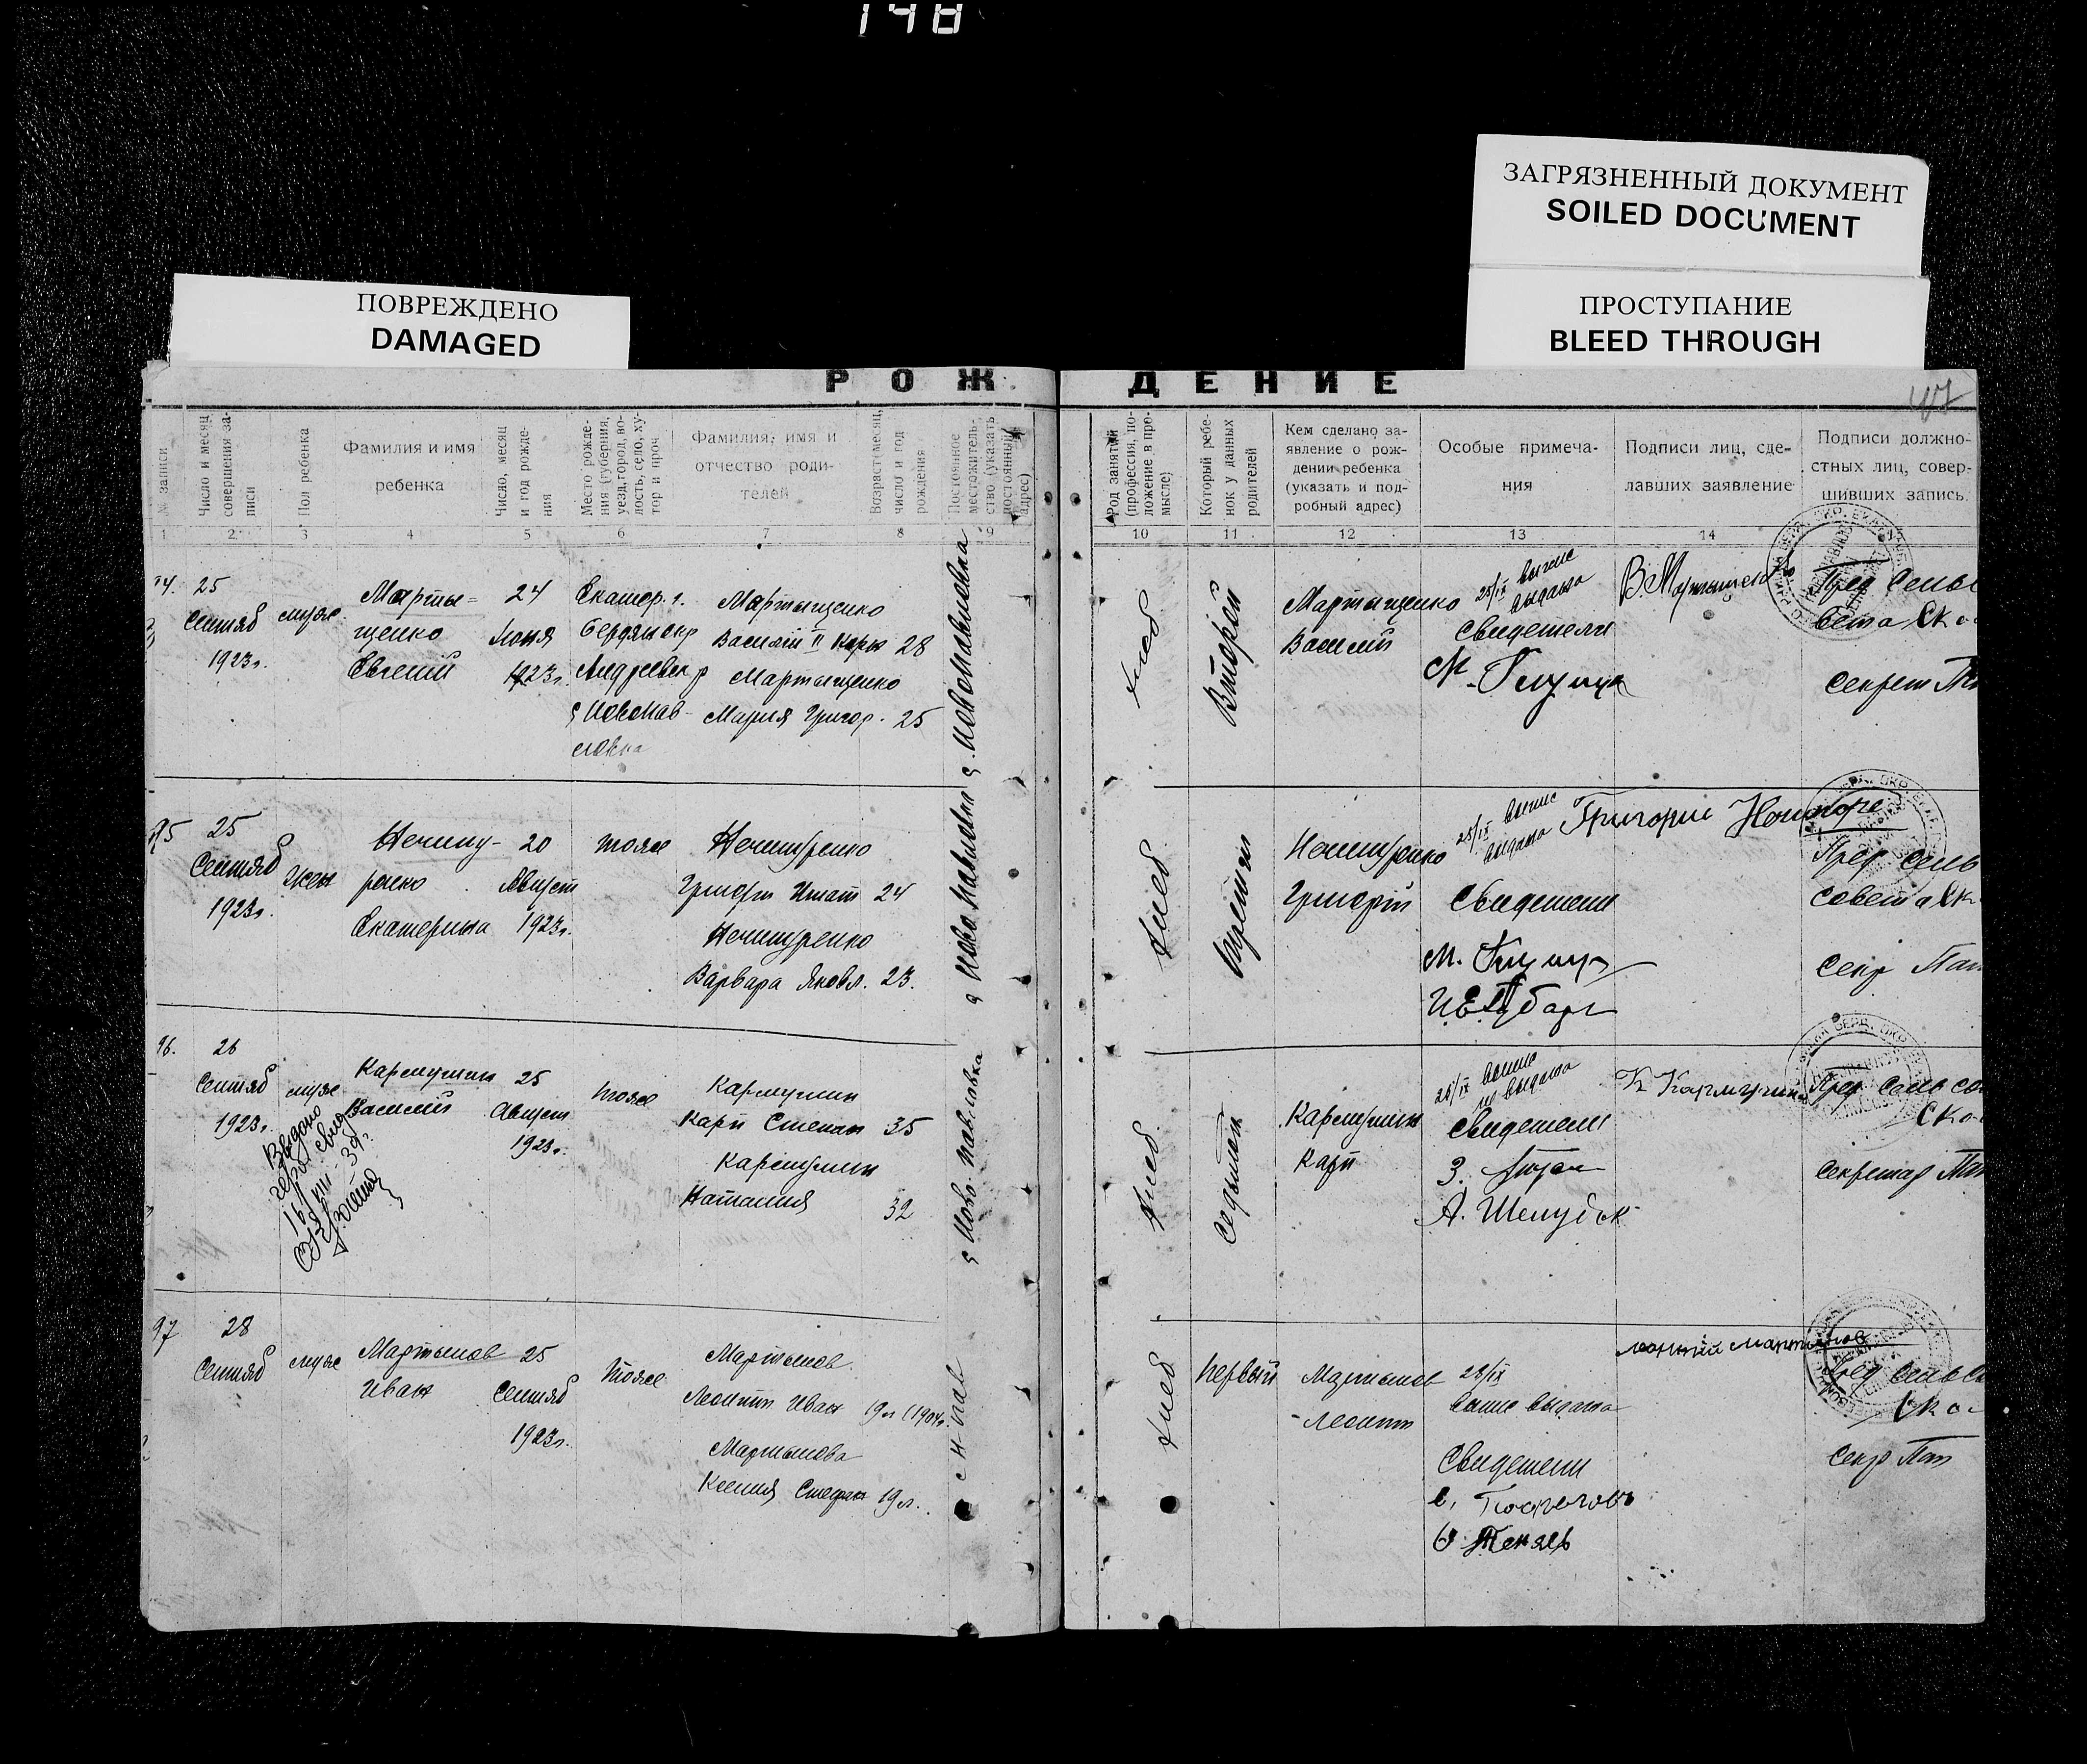 148
ЗАГРЯЗНЕННЫЙ ДОКУМЕНТ
SOILED DOCUMENT
ПРОСТУПАНИЕ
BLEED THROUGH
ПОВРЕЖДЕНО
DAMAGED
РОЖДЕНИЕ
47
№ записи
Число и месяц
совершения за-
писи
Пол ребенка
Фамилия и имя
ребенка
Число, месяц
и год рожде-
ния
Место рожде-
ния (губерния,
уезд, город, во-
лость, село, ху-
тор и проч
Фамилия, имя и
отчество роди-
телей
Возраст месяц,
число и год
рождения
Постоянное
местожитель-
ство (указать
постоянный
адрес)
Род занятий
(профессия, по-
ложение в про-
мысле)
Который ребе-
нок у данных
родителей
Кем сделано за-
явление о рож-
дении ребенка
(указать и под-
робный адрес)
Особые примеча-
ния
Подписи лиц, сде-
лавших заявление
Подписи должно-
стных лиц, совер-
шивших запись.
1 2 3 4 5 6 7 8 9 10 11 12 13 14
25
Сентяб
1923г.
муж
Марты=
щенко
Евгений
24
Июня
1923г.
Екатер. г.
Бердянскр
Андреевск р
с Новопав-
ловка
Мартыщенко
Василий
28
Мартыщенко
Мария Григор. 25
с. Новопавловка
хлеб
Второй
Мартыщенко
Василий
25/IX
выдана
Свидетели
Пред Сельс
вета Ско
секрет
95
25
Сентяб
1923г.
жен
Екатерина
20
Август
1923г.
тоже
Григори Игнат 24
Варвара Яковл. 23.
с Ново Павловка
хлеб
третий
Григорій
25/IX
выдана
Свидетели
Григорие
Пред сель
совета Ск
секр Пан
96.
26
Сентяб
1923г.
муж
Кармушин
Василий
25
Август
1923г.
тоже
Кармушин
Карп Степан 35
Кармушин
Наталия 32
с Ново-павловка
Выдано
16/VIII-39г.
хлеб
седьмой
Кармушин
Карп
26/IX
выдана
Свидетели
А. Шелудок
К Кармушин
Пред Сель со
Ско
секретар Пан
97
28
Сентяб
муж
Мартынов
Иван
25
Сентяб
1923г.
тоже
Мартынов
Леонтий Иван 19л (1904г.
Мартынова
Ксения Стефан 19л.
с Н-пав
хлеб
первый
Мартынов
Леонтий
28/IX
выдана
Свидетели
леонтій мартынов
Пред сель
Ско
секр Пан